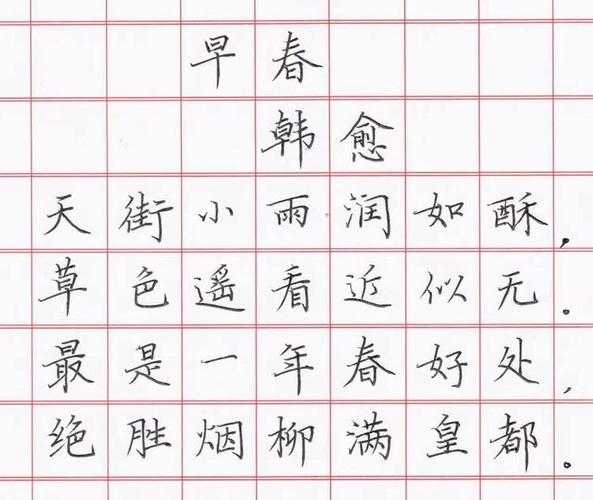 早春
韩愈
天街小雨润如酥，
草色遥看近似无。
最是一年春好处，
绝胜烟柳满皇都。